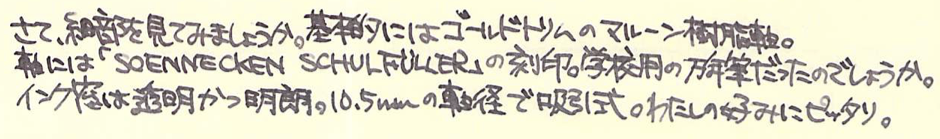 さて、細部を見てみましょうか。基本的にはゴールドトリムのマルーン樹脂軸。
軸には「SOENNECKEN SCHULFÜLLER」の刻印。学校用の万年筆だったのでしょうか。
インク窓は透明かつ明朗。10.5mmの軸径で吸引式。わたしの好みにピッタリ。